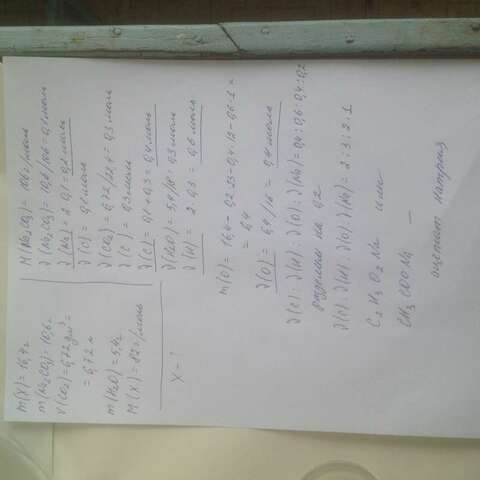 m(X) = 16,4 г
m(Na₂CO₃) = 10,6 г
V(CO₂) = 6,72 дм³ =
= 6,72 л
m(H₂O) = 5,4 г
M(X) = 82 г/моль
X - ?
M(Na₂CO₃) = 106 г/моль
ν(Na₂CO₃) = 10,6/106 = 0,1 моль
ν(Na) = 2·0,1 = 0,2 моль
ν(C) = 0,1 моль
ν(CO₂) = 6,72/22,4 = 0,3 моль
ν(C) = 0,3 моль
ν(C) = 0,1 + 0,3 = 0,4 моль
ν(H₂O) = 5,4/18 = 0,3 моль
ν(H) = 2·0,3 = 0,6 моль
m(O) = 16,4 - 0,2·23 - 0,4·12 - 0,6·1 =
= 6,4
ν(O) = 6,4/16 = 0,4 моль
ν(C) : ν(H) : ν(O) : ν(Na) = 0,4 : 0,6 : 0,4 : 0,2
разделим на 0,2
ν(C) : ν(H) : ν(O) : ν(Na) = 2 : 3 : 2 : 1
C₂H₃O₂Na или
CH₃COONa –
ацетат натрия